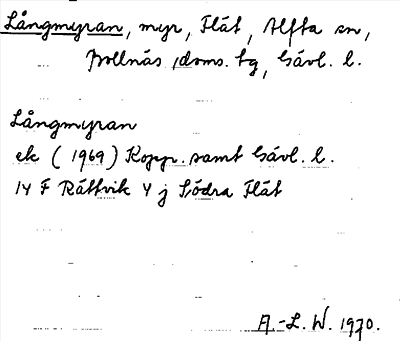 Långmyran, myr, Flät, Alfta sn,
Bollnäs doms. tg, Gävl. l.
Långmyran
ek (1969) Kopp. samt Gävl. l.
14 F Rättvik 4 j Södra Flät
A.-L. W. 1970.